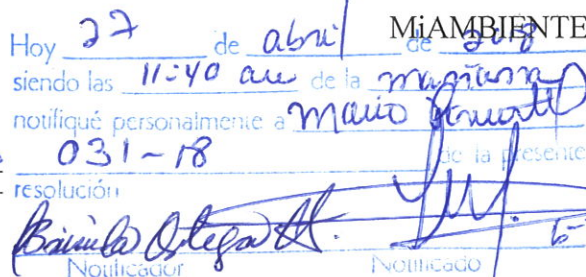 MiAMBIENTE
Hoy 27 de abril de 2018
siendo las 11:40 am de la mañana
notifiqué personalmente a Mario
031-18 de la presente
resolución
Ortega
Notificador Notificado